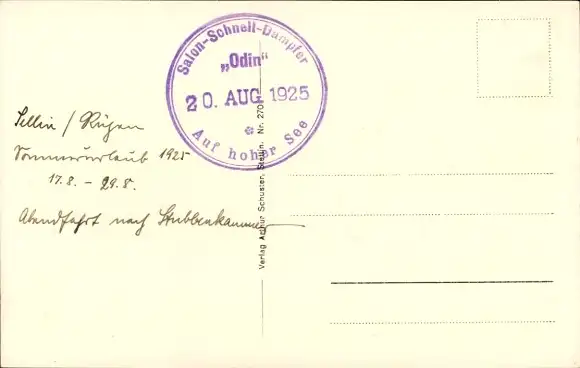 Salon-Schnell-Dampfer
„Odin“
20. AUG. 1925
Auf hoher See
Sellin / Rügen
Sommerurlaub 1925
17.8. - 29.8.
Abendfahrt nach Stubbenkammer
Verlag Arthur Schuster, Stettin. Nr. 270